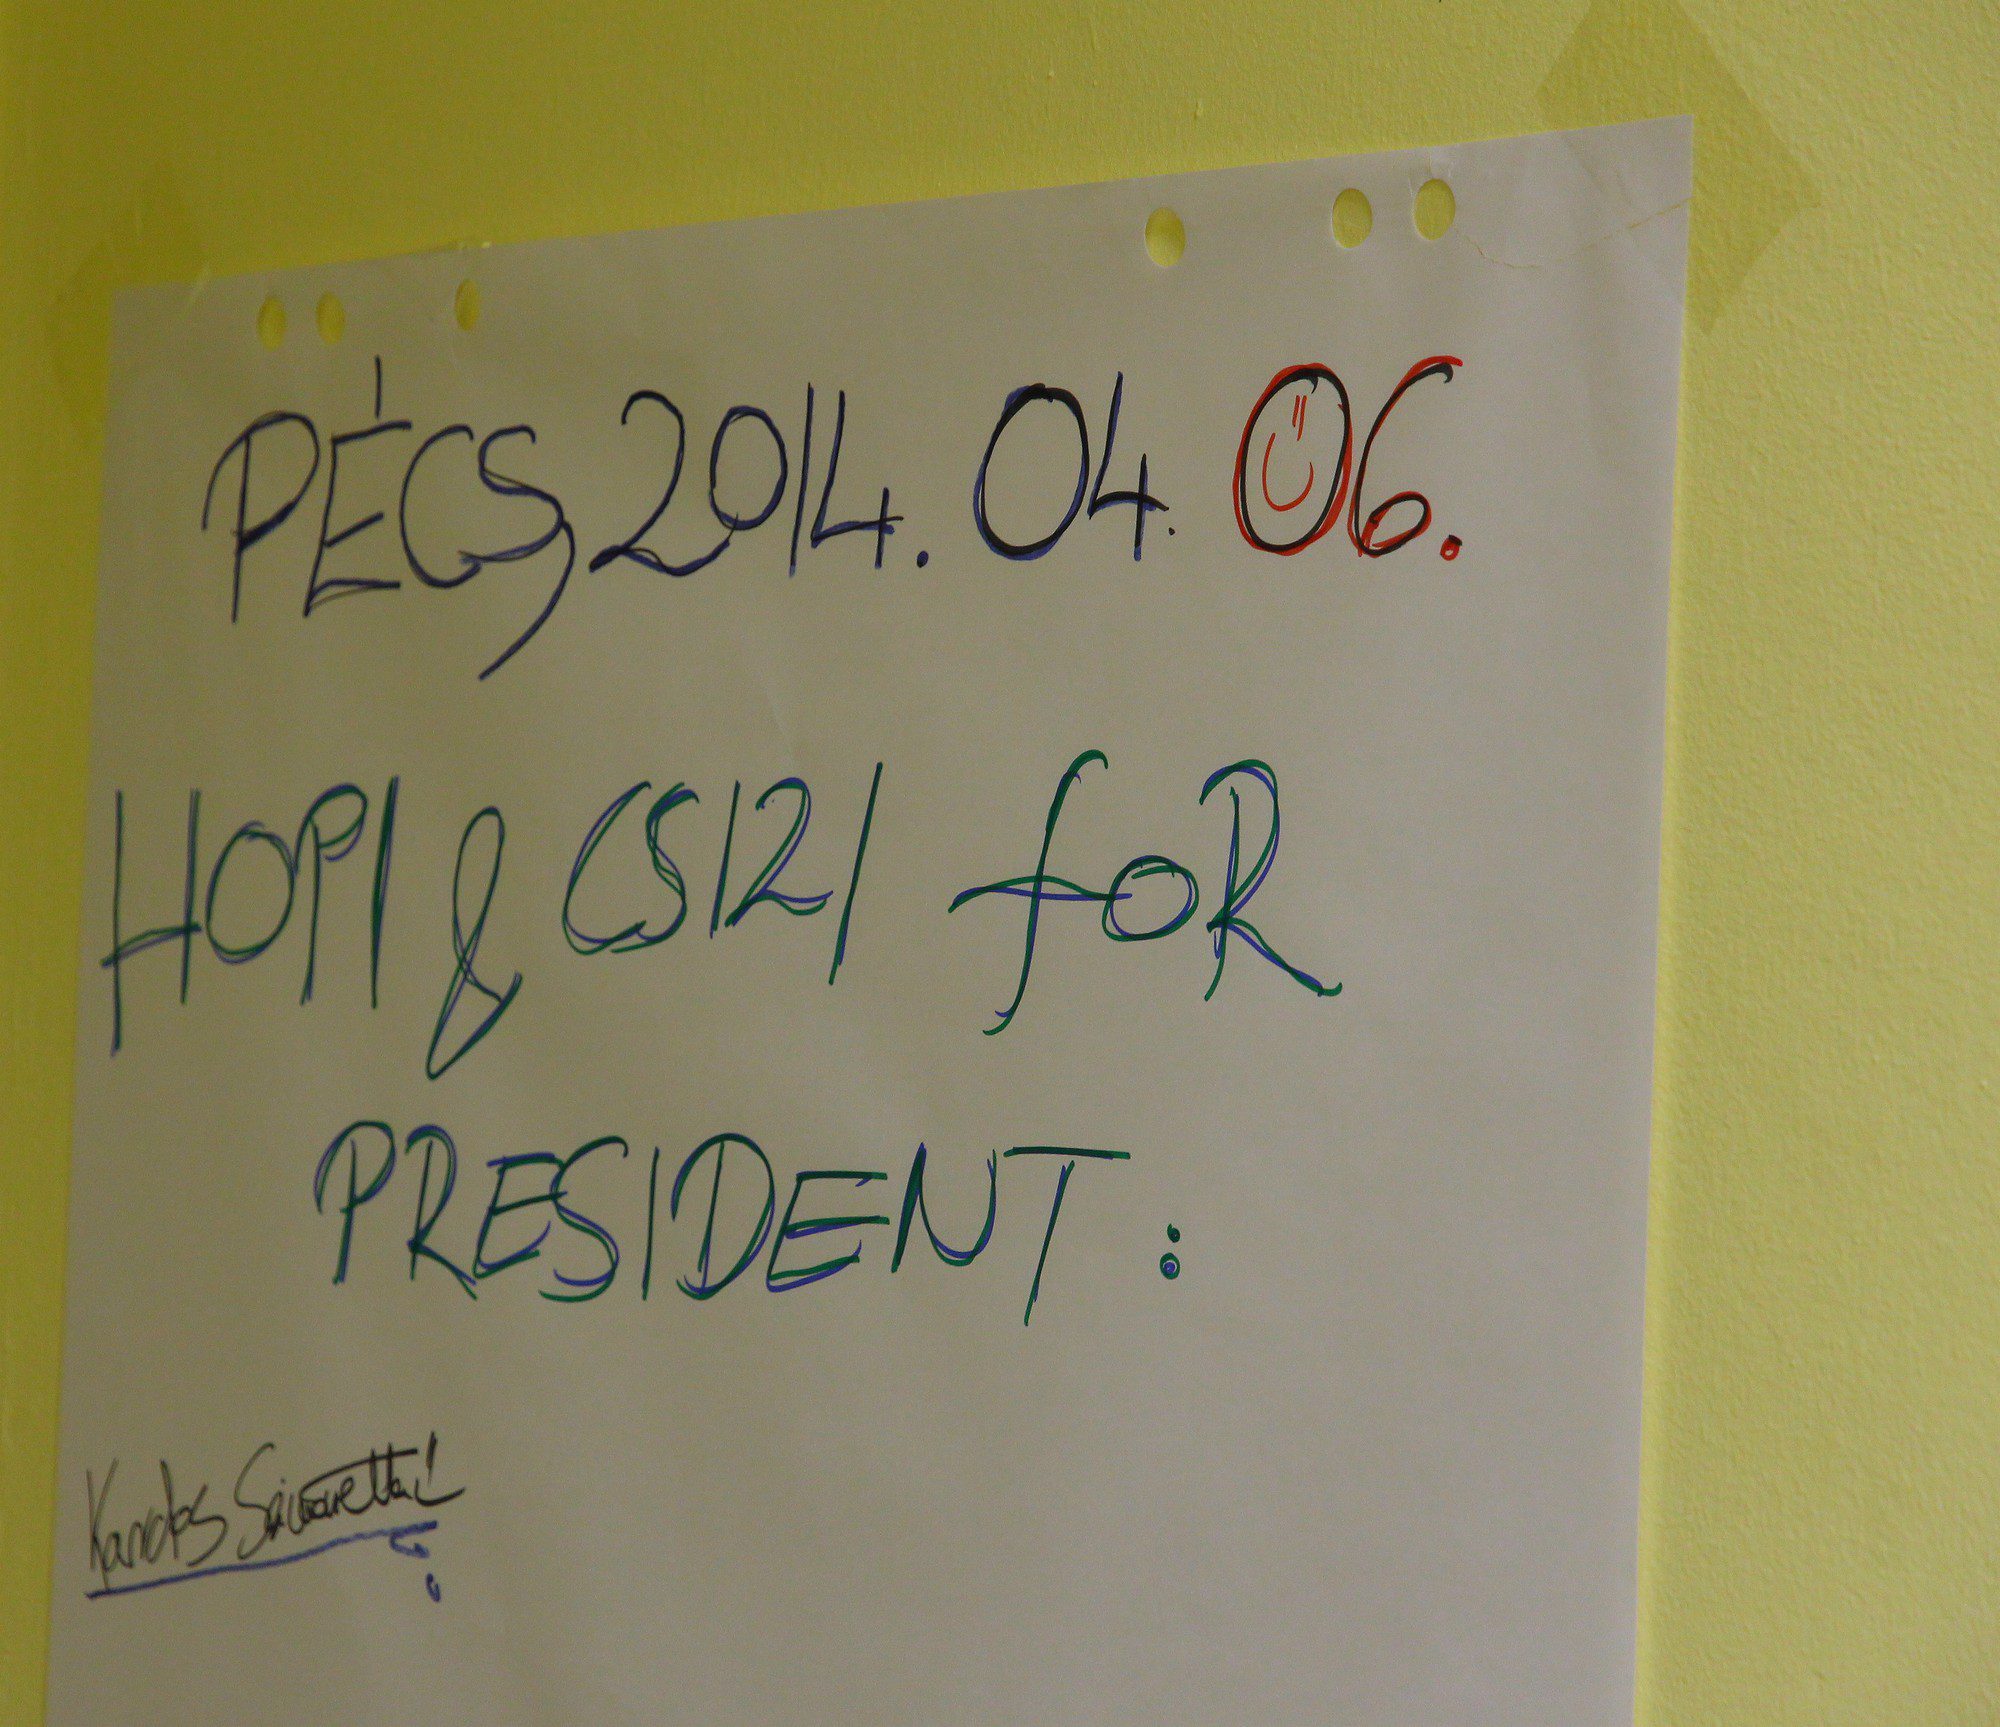 PÉCS, 2014. 04. 06.
HOPI & CSIZI FOR
PRESIDENT :
Kardos